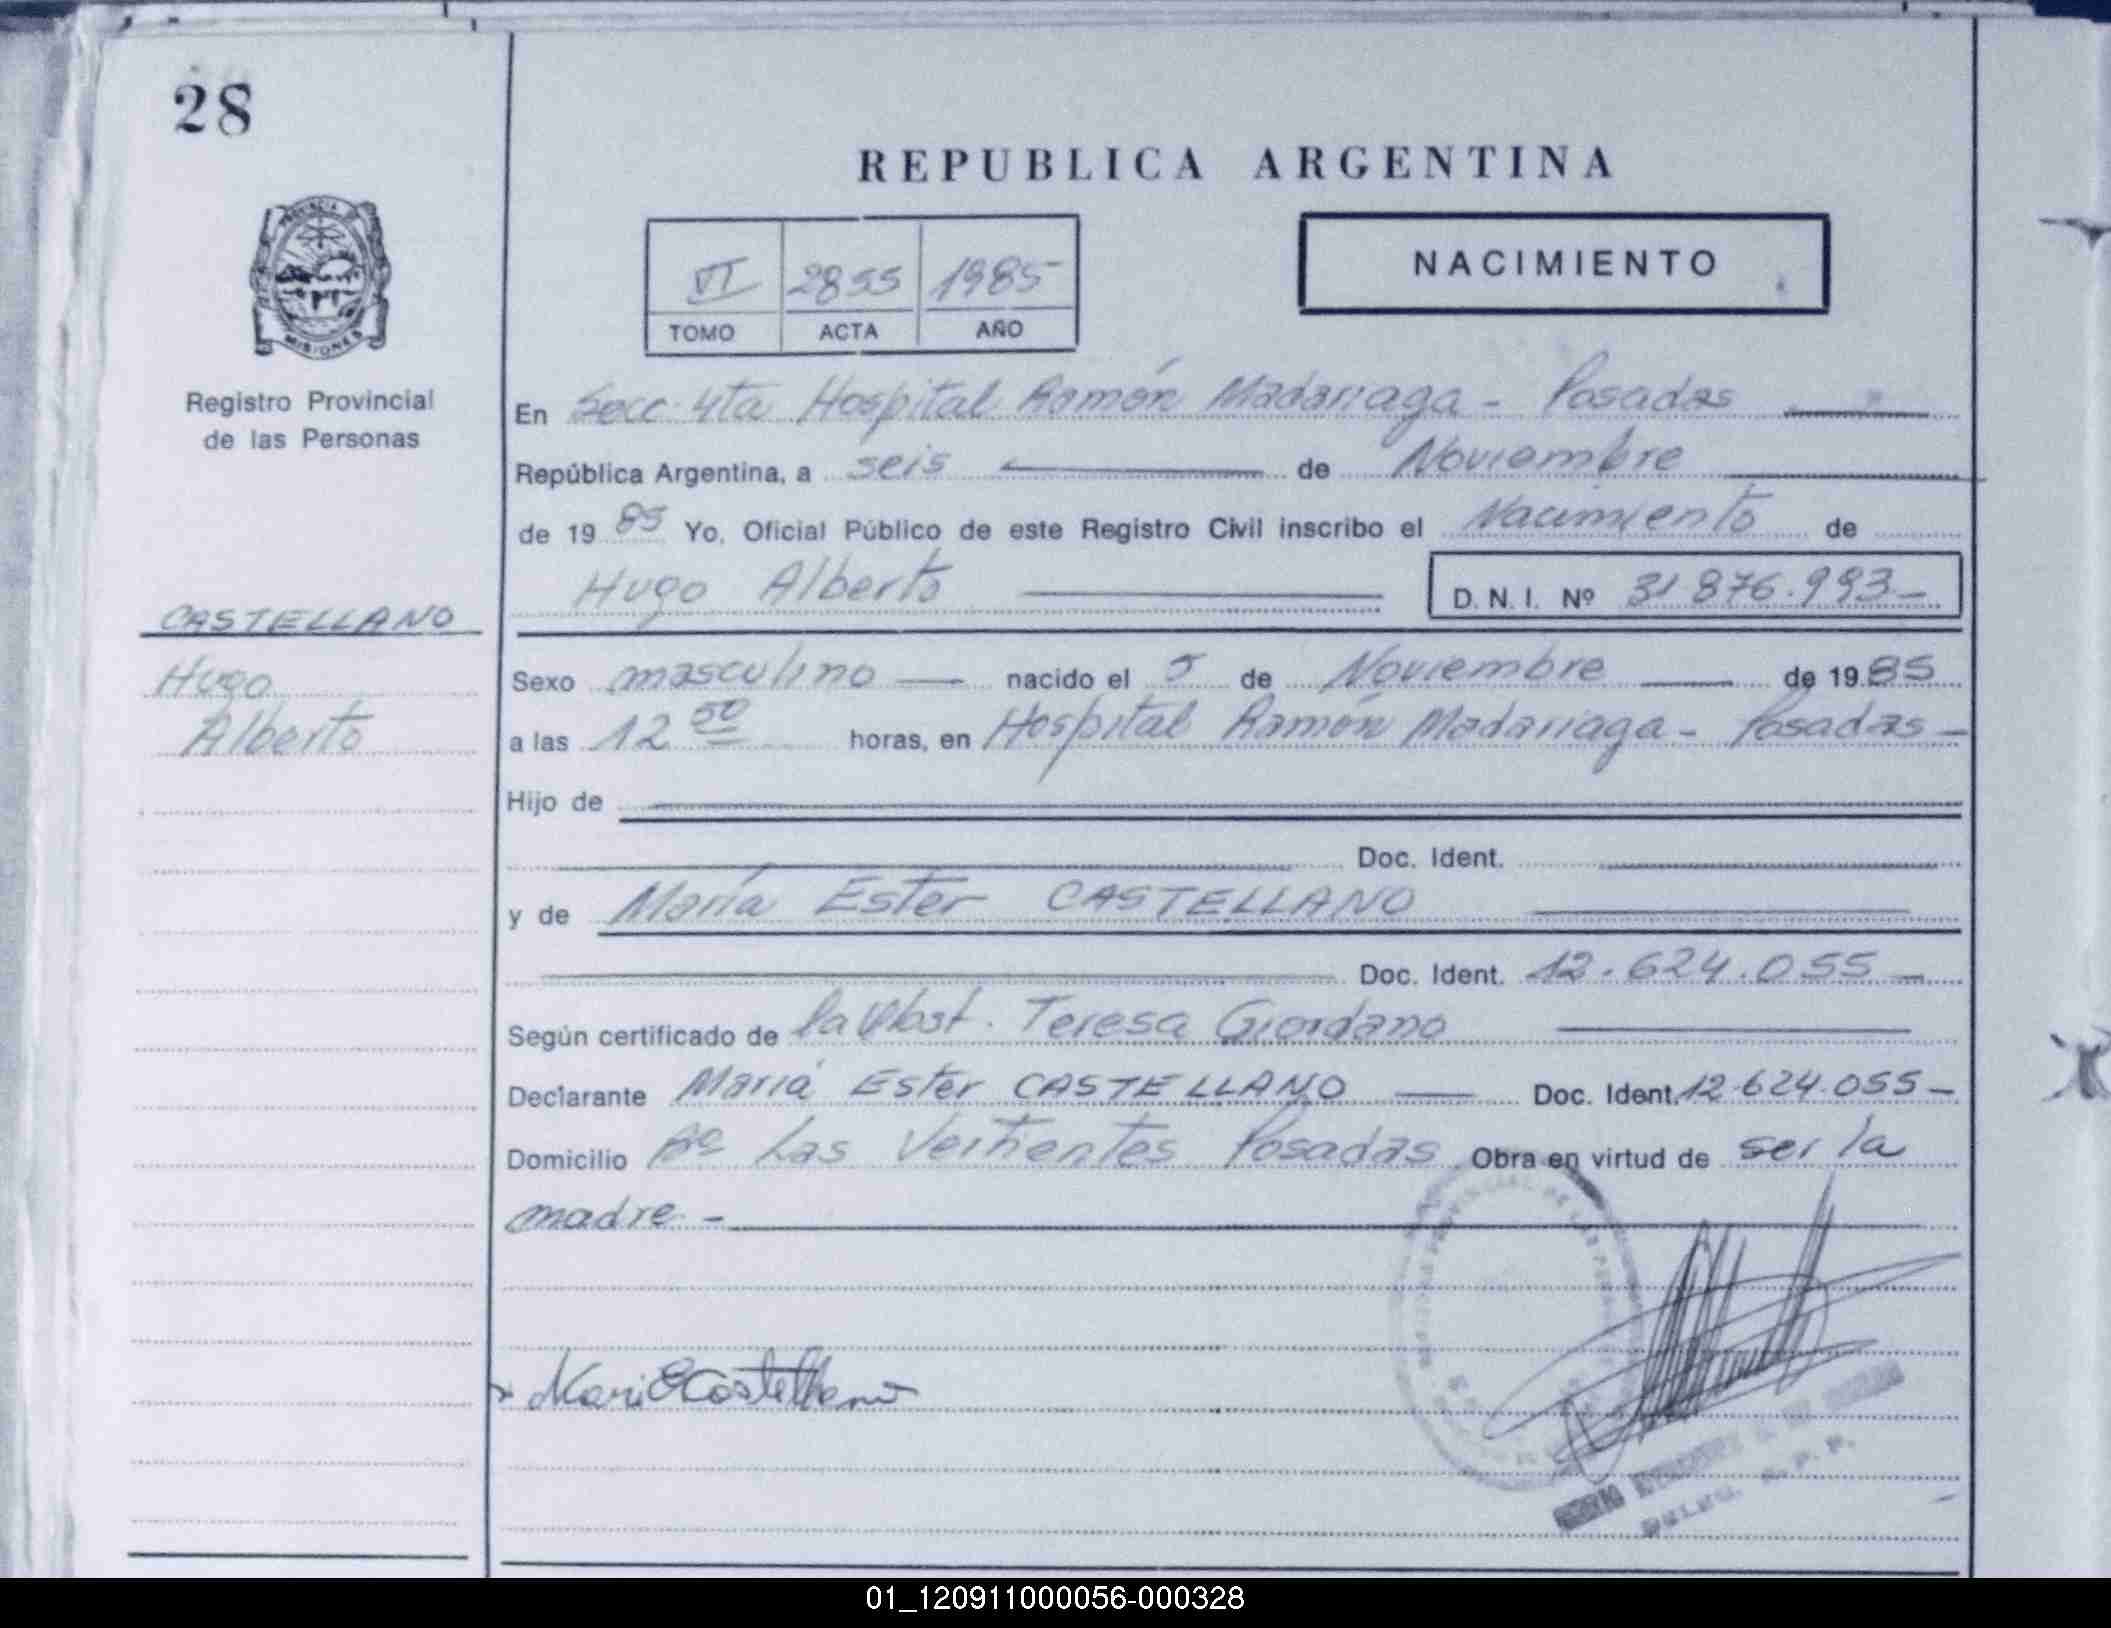 28
REPUBLICA ARGENTINA
PROVINCIA DE
MISIONES
VI 2855 1985
TOMO ACTA AÑO
NACIMIENTO
Registro Provincial
de las Personas
En Secc. 4ta Hospital Ramón Madariaga - Posadas
República Argentina, a seis de Noviembre
de 19 85 Yo, Oficial Público de este Registro Civil inscribo el Nacimiento de
Hugo Alberto D.N.I. Nº 31 876.993-
CASTELLANO
Hugo
Alberto
Sexo masculino nacido el 5 de Noviembre de 19 85
a las 12 50 horas, en Hospital Ramón Madariaga - Posadas -
Hijo de
Doc. Ident.
y de María Ester CASTELLANO
Doc. Ident. 12.624.055 -
Según certificado de la Obst. Teresa Giordano
Declarante María Ester CASTELLANO Doc. Ident. 12.624.055 -
Domicilio Bº Las Vertientes Posadas Obra en virtud de ser la
madre -
01_120911000056-000328